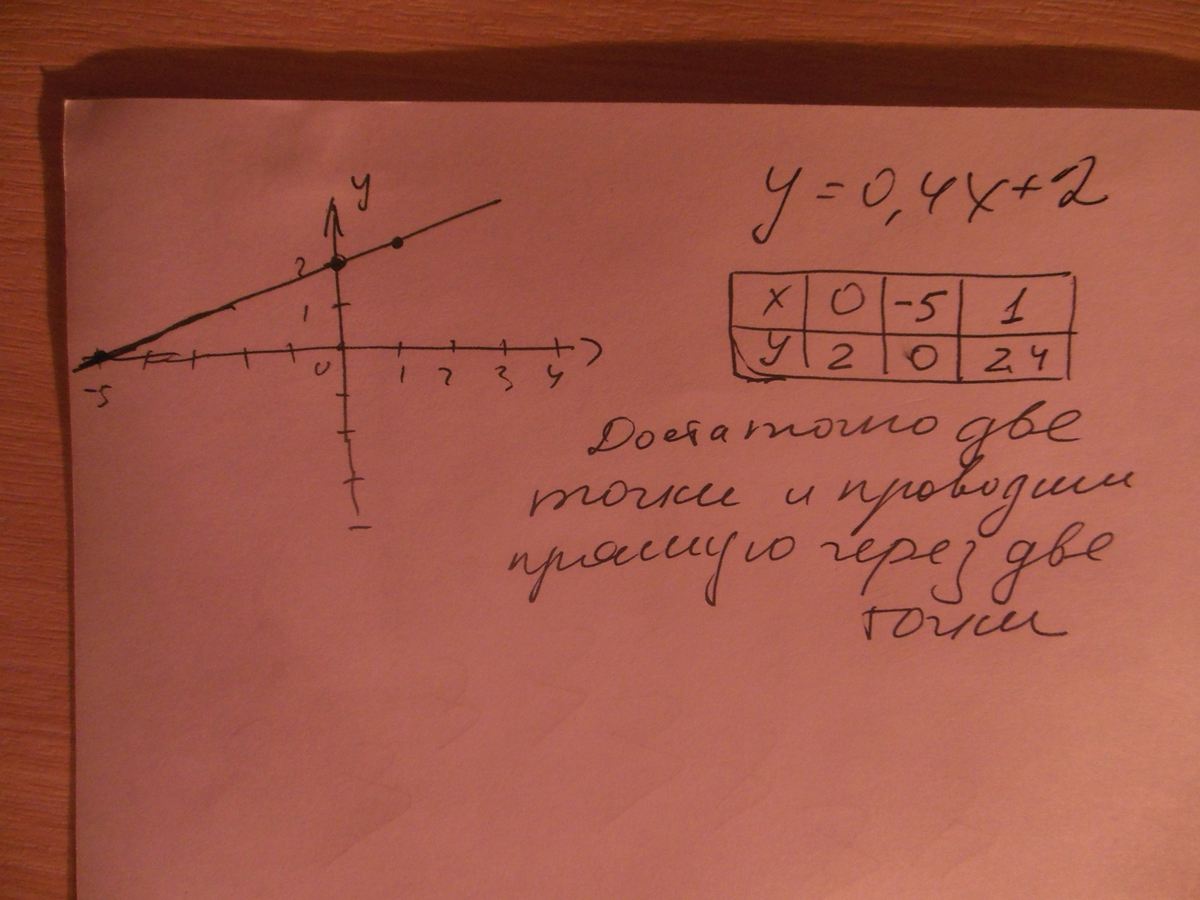 y
2
1
-5 0 1 2 3 4
y = 0,4x+2
x 0 -5 1
y 2 0 2,4
Достаточно две
точки и проводим
прямую через две
точки